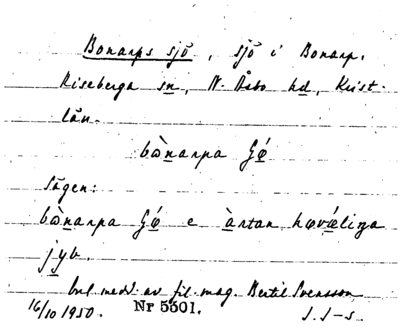 Bonarps sjö, sjö i Bonarp,
Riseberga sn, N. Åsbo hd, Krist.
län.
bὼnarpa ʃǿ
Sägen:
bὼnarpa ʃǿ e àrtan hovǽliŋa
jyb.
enl. medd. av fil. mag. Bertil Svensson
16/10 1950. Nr 5501. J. J-s.